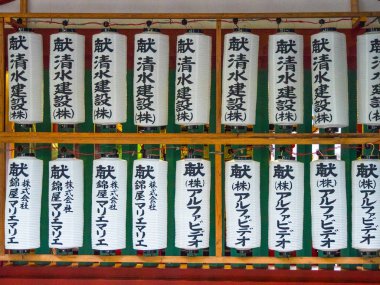 献 清水建設(株)
献 清水建設(株)
献 清水建設(株)
献 清水建設(株)
献 清水建設(株)
献 清水建設(株)
献 清水建設(株)
献 清水建設(株)
献 株式会社 錦屋マリエマリエ
献 株式会社 錦屋マリエマリエ
献 株式会社 錦屋マリエマリエ
献 (株)アルファビデオ
献 (株)アルファビデオ
献 (株)アルファビデオ
献 (株)アルファビデオ
献 (株)アルファビデオ